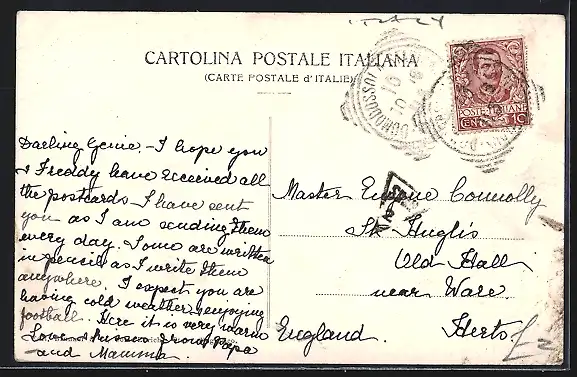 ITALY
CARTOLINA POSTALE ITALIANA
(CARTE POSTALE d'ITALIE)
DOMODOSSOLA
POSTE ITALIANE
CENT. 10
Darling Genie - I hope you
& Freddy have received all
the postcards I have sent
you as I am sending them
every day. Some are written
in pencil as I write them
anywhere. I expect you are
having cold weather & enjoying
football. Here it is very warm
Love & kisses from Papa
and Mamma.
Master Eugene Connolly
St Hugh's
Old Hall
near Ware
England. Herts